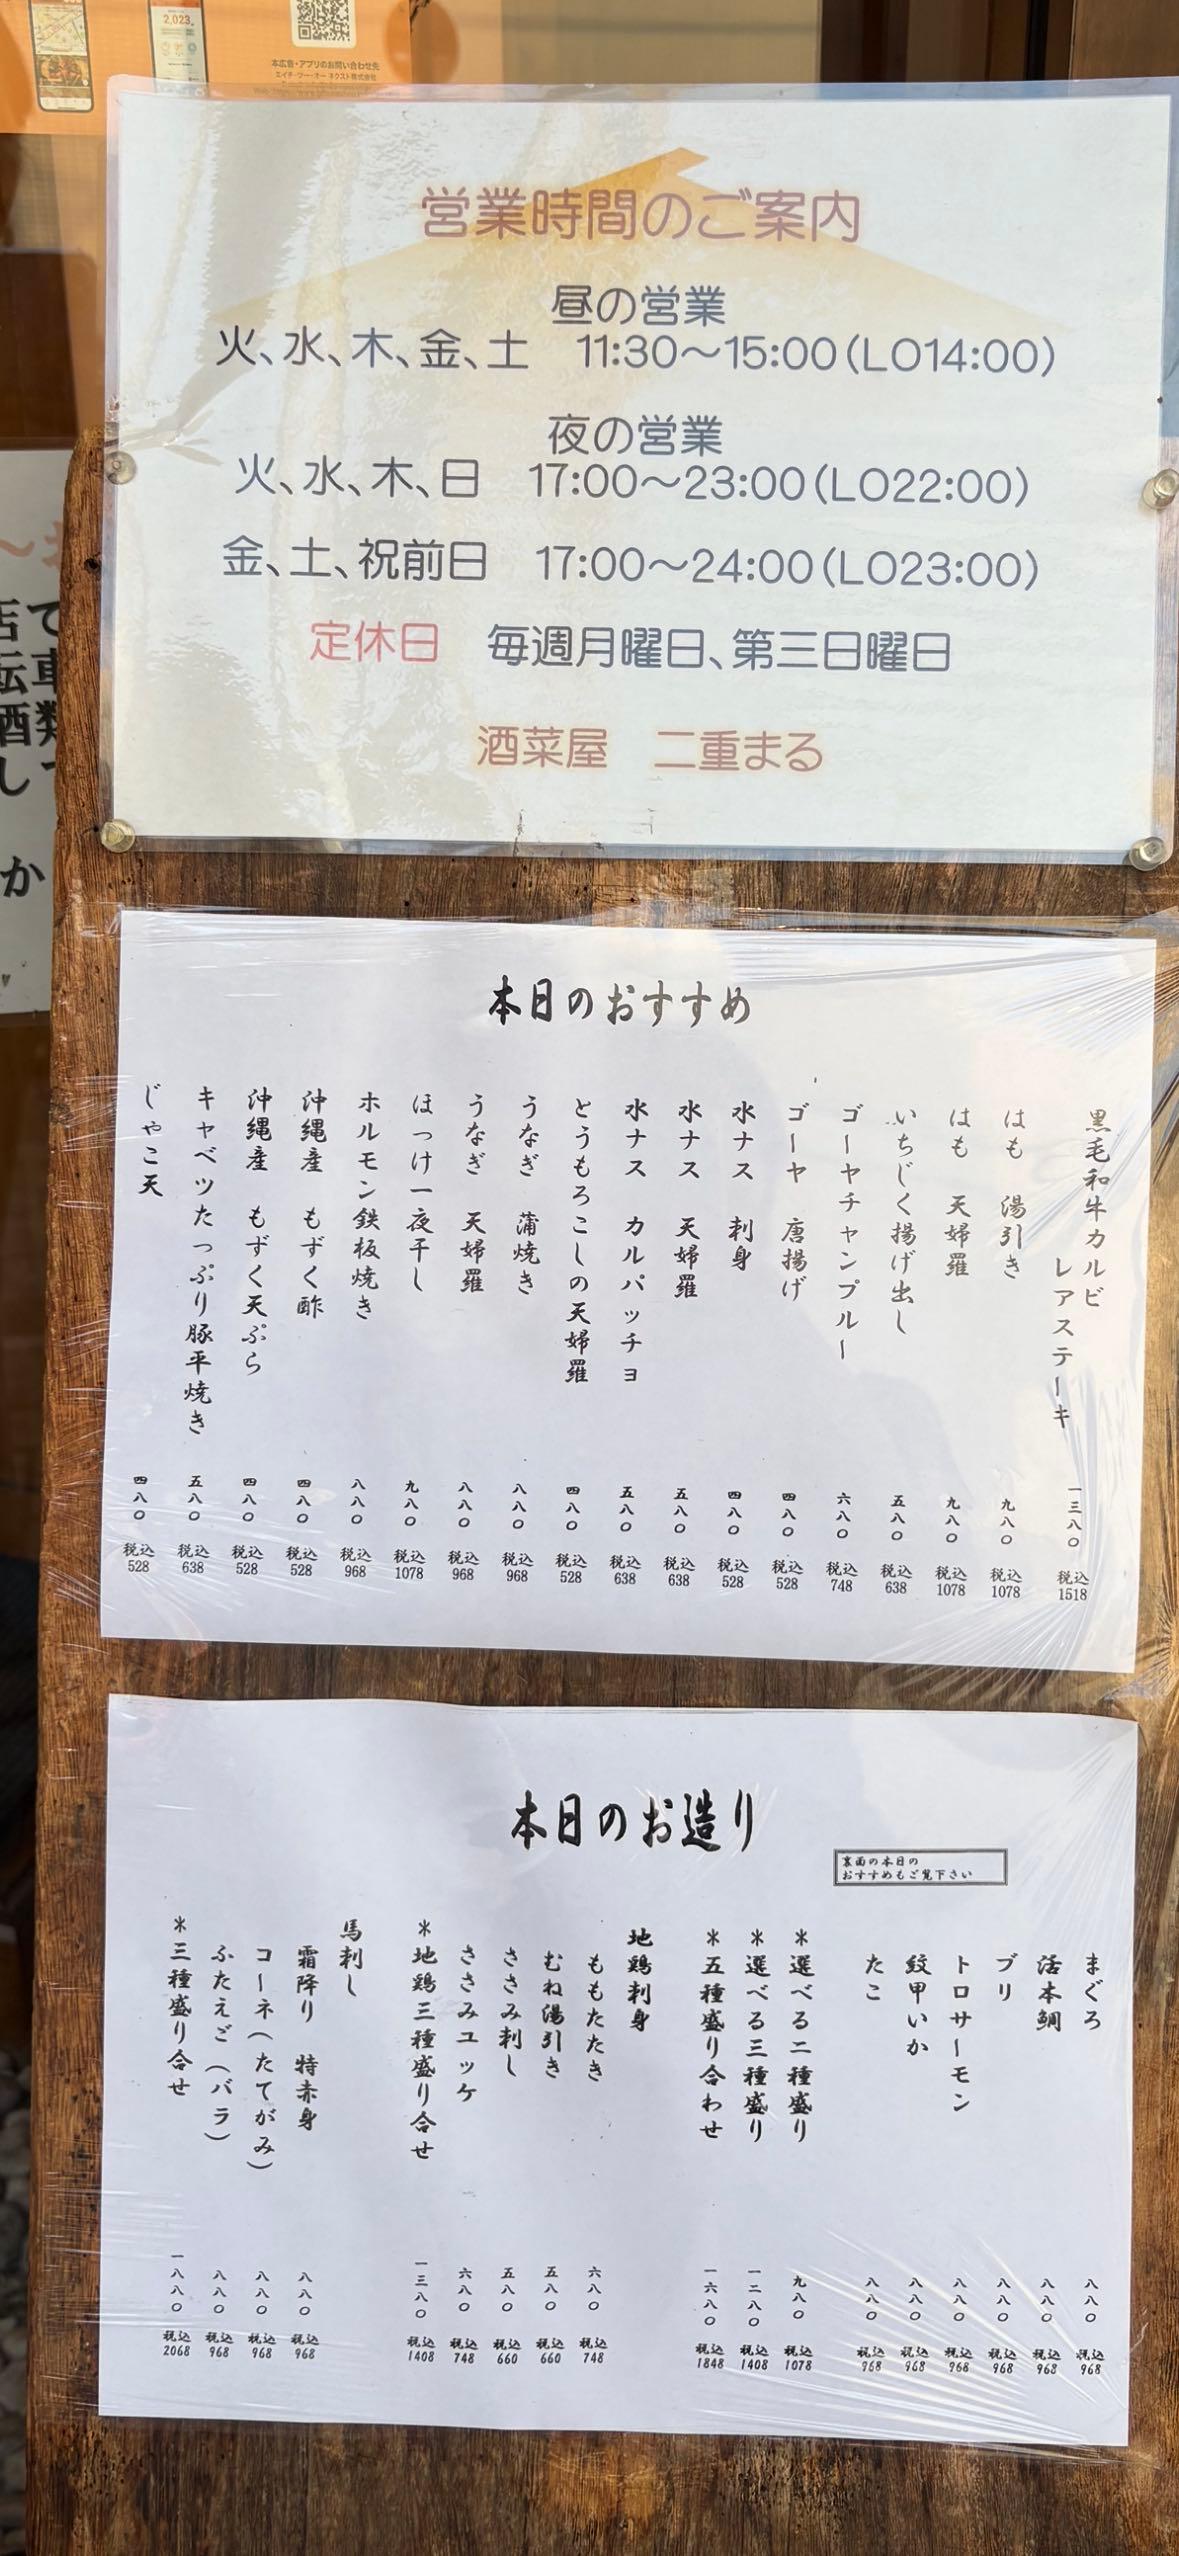 2,023
本広告・アプリのお問い合わせ先
エイチ・ツー・オー ネクスト株式会社
営業時間のご案内
昼の営業
火、水、木、金、土　11:30～15:00(LO14:00)
夜の営業
火、水、木、日　17:00～23:00(LO22:00)
金、土、祝前日　17:00～24:00(LO23:00)
定休日　毎週月曜日、第三日曜日
酒菜屋　二重まる
店て
転車
酒類
して
か
本日のおすすめ
黒毛和牛カルビ
レアステーキ 一三八〇 税込1518
はも　湯引き 九八〇 税込1078
はも　天婦羅 九八〇 税込1078
いちじく揚げ出し 五八〇 税込638
ゴーヤチャンプルー 六八〇 税込748
ゴーヤ　唐揚げ 四八〇 税込528
水ナス　刺身 四八〇 税込528
水ナス　天婦羅 五八〇 税込638
水ナス　カルパッチョ 五八〇 税込638
とうもろこしの天婦羅 四八〇 税込528
うなぎ　蒲焼き 八八〇 税込968
うなぎ　天婦羅 八八〇 税込968
ほっけ一夜干し 九八〇 税込1078
ホルモン鉄板焼き 八八〇 税込968
沖縄産　もずく酢 四八〇 税込528
沖縄産　もずく天ぷら 四八〇 税込528
キャベツたっぷり豚平焼き 五八〇 税込638
じゃこ天 四八〇 税込528
本日のお造り
裏面の本日の
おすすめもご覧下さい
まぐろ 八八〇 税込968
活本鯛 八八〇 税込968
ブリ 八八〇 税込968
トロサーモン 八八〇 税込968
紋甲いか 八八〇 税込968
たこ 八八〇 税込968
＊選べる二種盛り 九八〇 税込1078
＊選べる三種盛り 一二八〇 税込1408
＊五種盛り合わせ 一六八〇 税込1848
地鶏刺身
ももたたき 六八〇 税込748
むね湯引き 五八〇 税込660
ささみ刺し 五八〇 税込660
ささみユッケ 六八〇 税込748
＊地鶏三種盛り合せ 一三八〇 税込1408
馬刺し
霜降り　特赤身 八八〇 税込968
コーネ(たてがみ) 八八〇 税込968
ふたえご(バラ) 八八〇 税込968
＊三種盛り合せ 一八八〇 税込2068